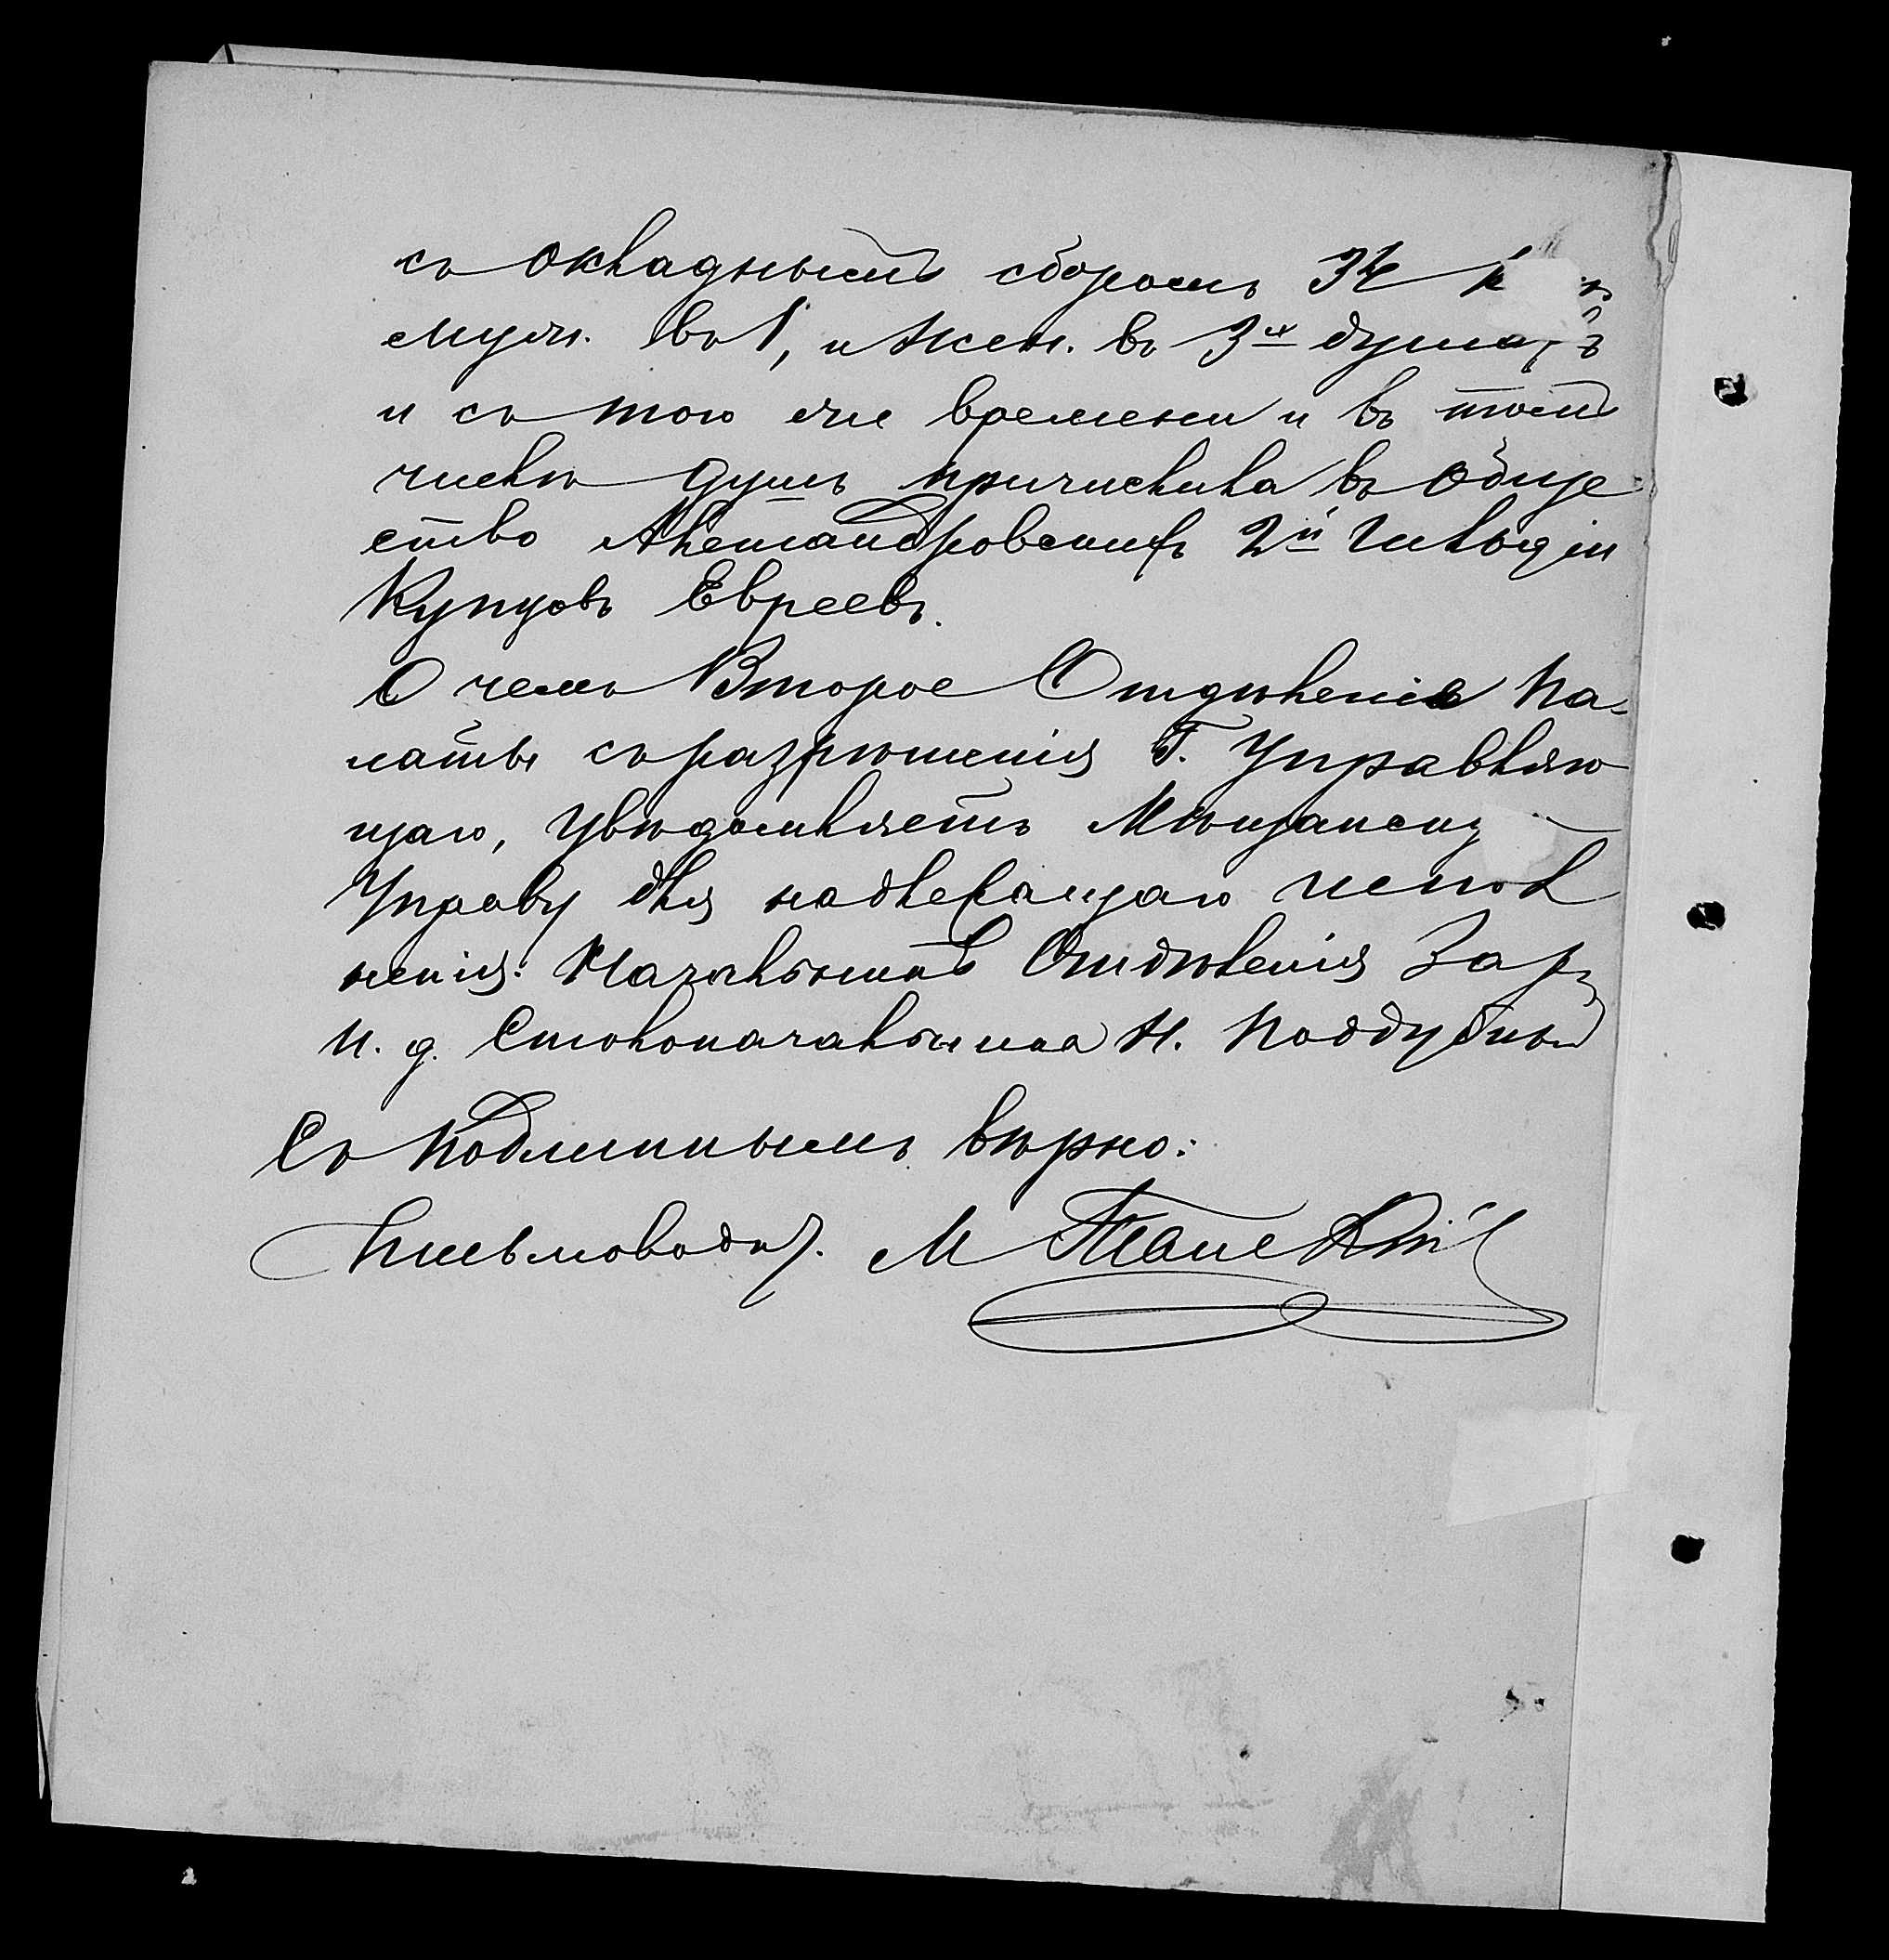 съ окладнымъ сборомъ 34 к
муж. въ 1, и жен. въ 3хъ душахъ
и съ того же времени и въ томъ
числѣ душъ причислила въ Обще
ство Александровскихъ 2й Гильдіи
Купцовъ Евреевъ.
О чемъ Второе Отдѣленіе Па-
латы съ разрѣшенія Г. Управляю
щаго, увѣдомляетъ Мѣщанску
Управу для надлежащаго испол
ненія: Начальникъ Отдѣленія
И. д. Столоначальника Н. Поддубный
Съ подлиннымъ вѣрно:
Письмоводит. М